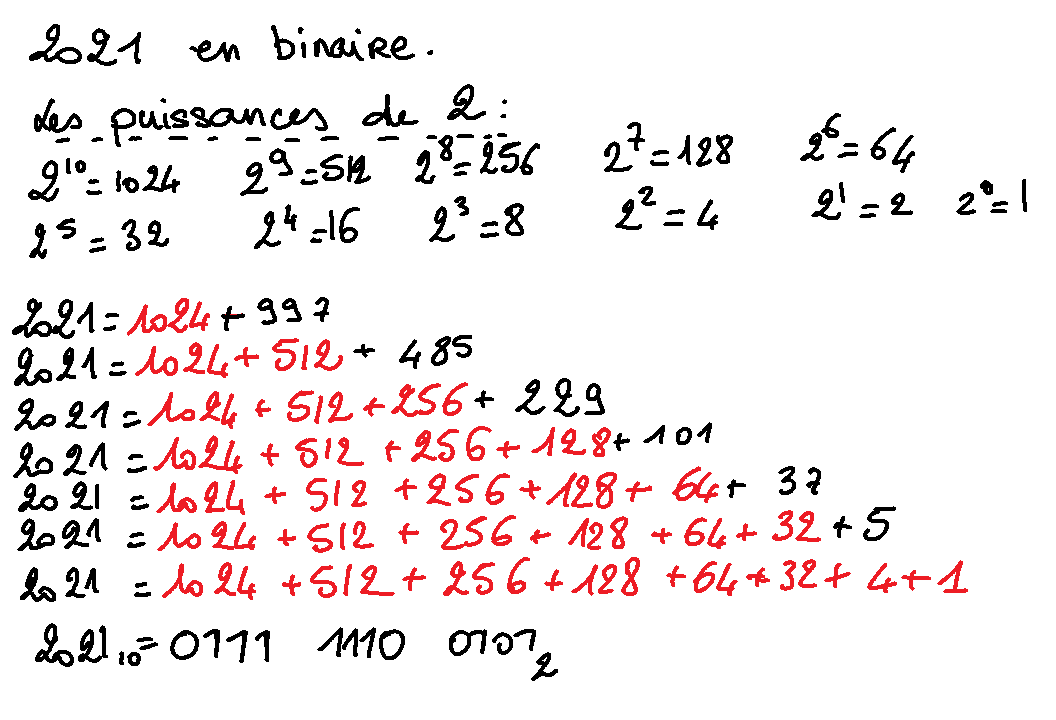 2021 en binaire.
Les puissances de 2 :
2¹⁰=1024 2⁹=512 2⁸=256 2⁷=128 2⁶=64
2⁵=32 2⁴=16 2³=8 2²=4 2¹=2 2⁰=1
2021=1024+997
2021=1024+512+485
2021=1024+512+256+229
2021=1024+512+256+128+101
2021=1024+512+256+128+64+37
2021=1024+512+256+128+64+32+5
2021=1024+512+256+128+64+32+4+1
2021₁₀=0111 1110 0101₂